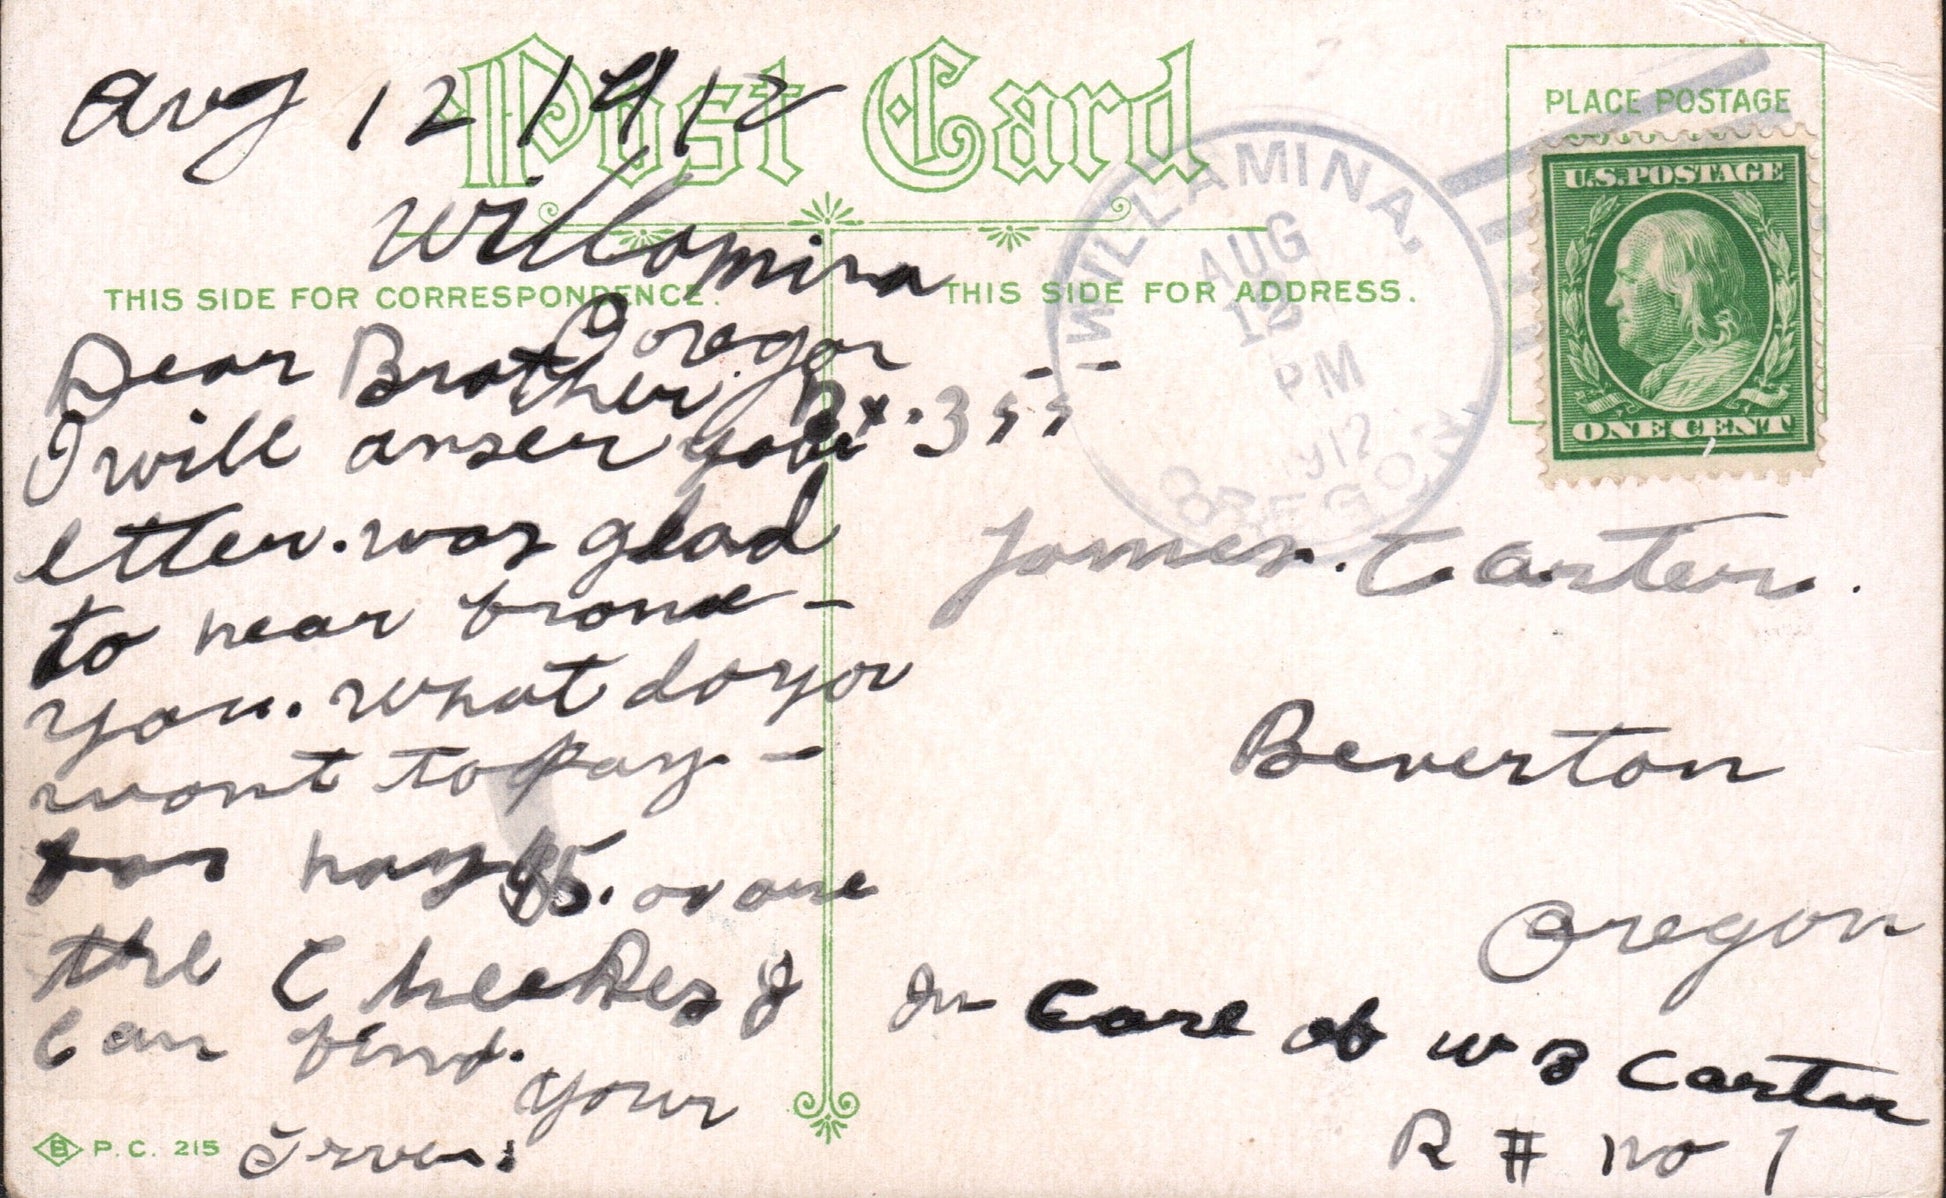 Post Card
Aug 12 1912
Willamina
Oregon
Bx. 355
THIS SIDE FOR CORRESPONDENCE.
Dear Brother
I will anser your
letter. was glad
to hear from
you. what do you
wont to pay -
for hay $5. or are
the I
can find.
your
B P.C. 215
THIS SIDE FOR ADDRESS.
WILLAMINA,
AUG
12
PM
1912
OREGON
PLACE POSTAGE
U.S.POSTAGE
ONE CENT
James. Carter.
Beverton
Oregon
In Care of W B Carter
R # no 1